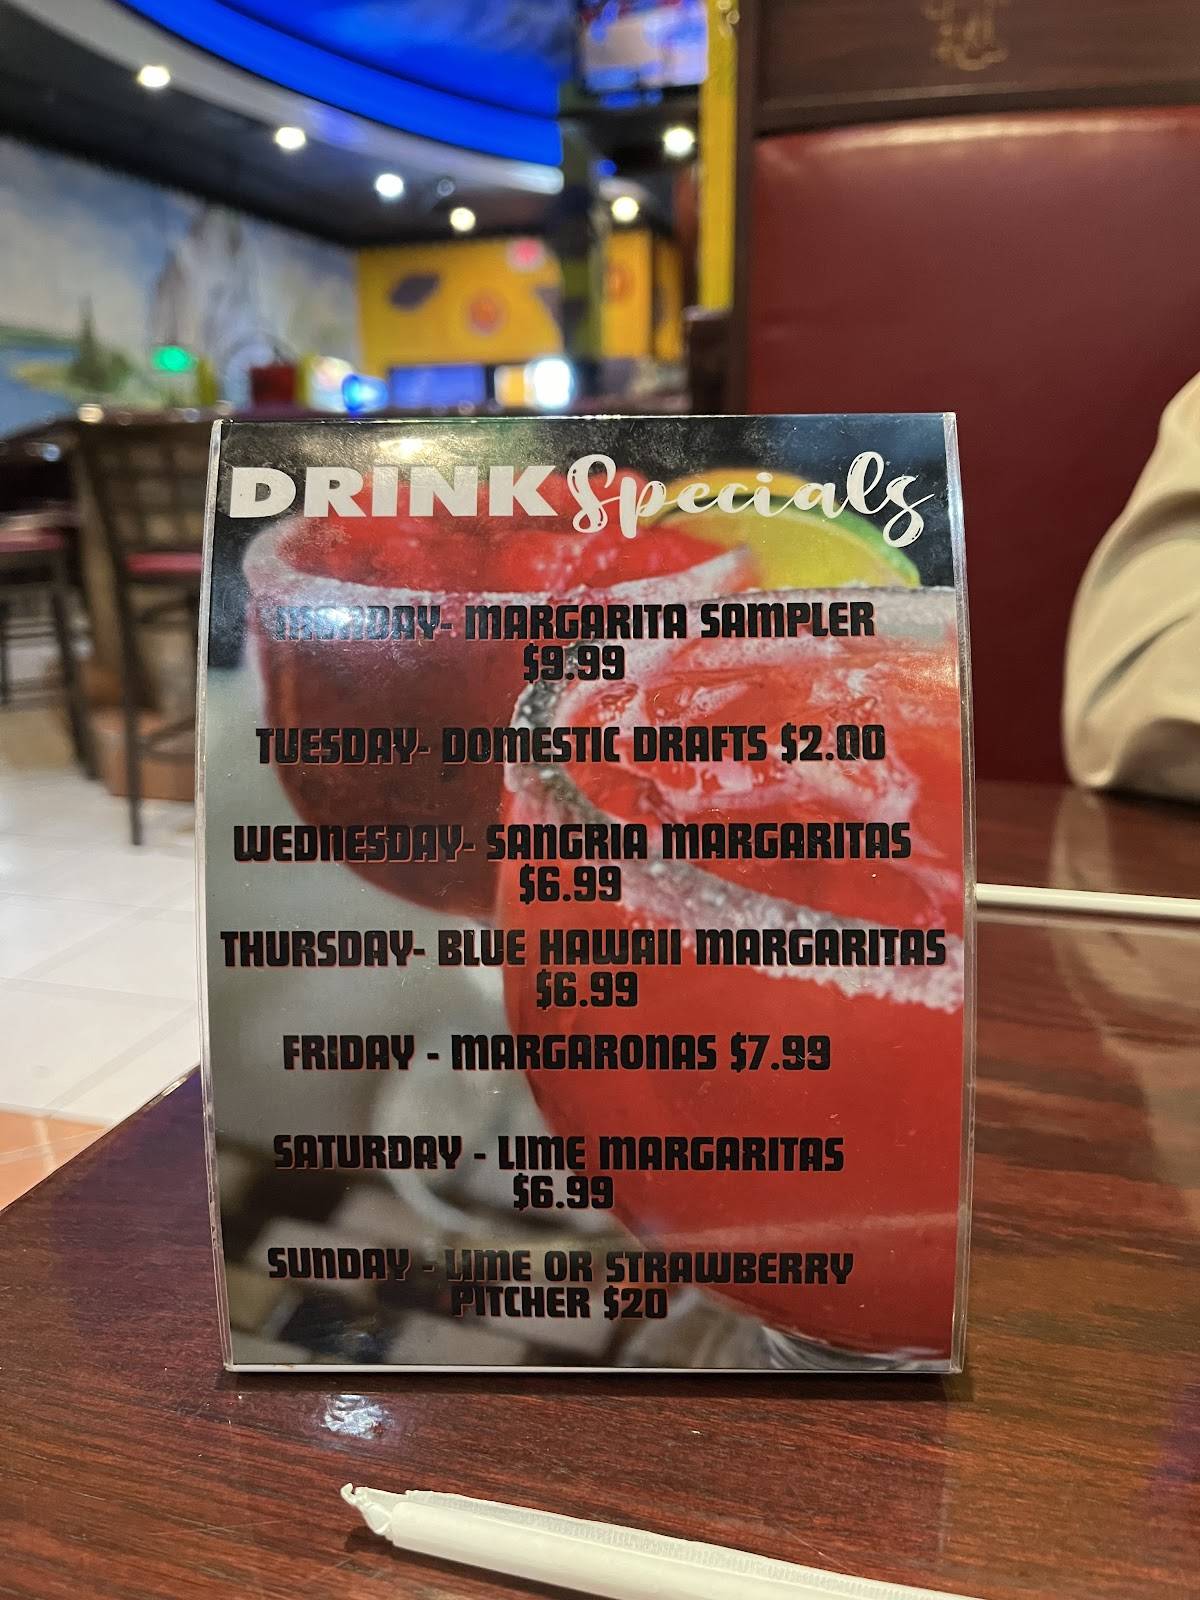 DRINK Specials
MONDAY- MARGARITA SAMPLER
$9.99
TUESDAY- DOMESTIC DRAFTS $2.00
WEDNESDAY- SANGRIA MARGARITAS
$6.99
THURSDAY- BLUE HAWAII MARGARITAS
$6.99
FRIDAY - MARGARONAS $7.99
SATURDAY - LIME MARGARITAS
$6.99
SUNDAY - LIME OR STRAWBERRY
PITCHER $20